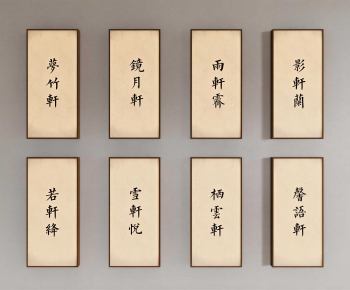 夢竹軒
鏡月軒
雨軒霽
影軒蘭
若軒絳
雪軒悅
栖雲軒
馨語軒